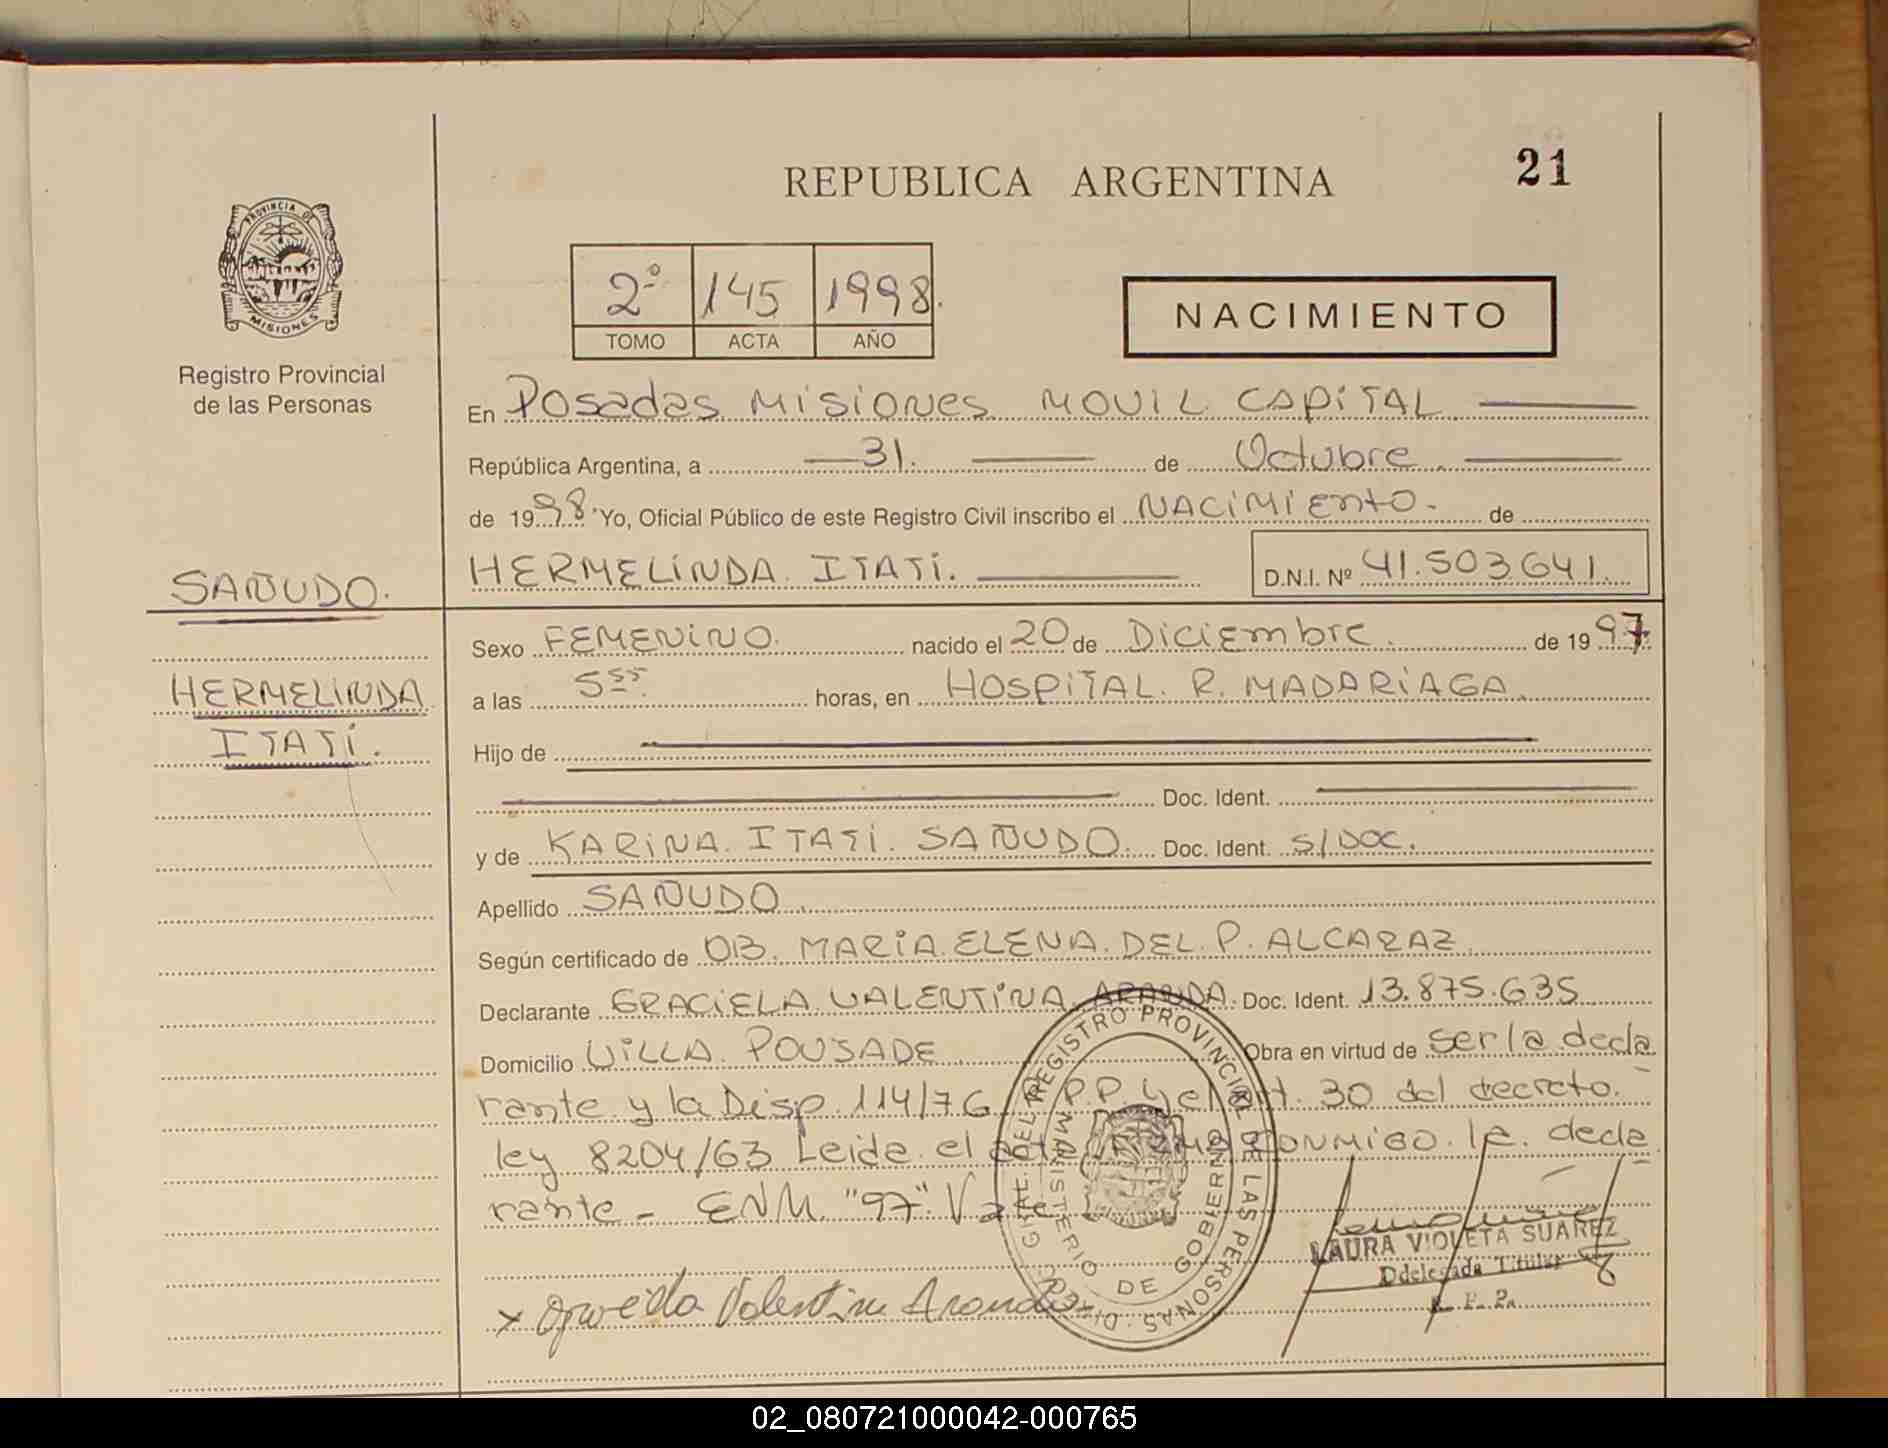 REPUBLICA ARGENTINA
21
PROVINCIA DE
MISIONES
Registro Provincial
de las Personas
2º 145 1998.
TOMO ACTA AÑO
NACIMIENTO
En Posadas Misiones Movil Capital
República Argentina, a 31. de Octubre
de 1998. Yo, Oficial Público de este Registro Civil inscribo el NACIMIENTO. de
HERMELINDA ITATI. D.N.I. Nº 41.503641.
SAÑUDO.
HERMELINDA
ITATI.
Sexo FEMENINO. nacido el 20 de Diciembre. de 1997.
a las 5 55 horas, en HOSPITAL. R. MADARIAGA.
Hijo de
Doc. Ident.
y de KARINA. ITATI. SAÑUDO. Doc. Ident. S/DOC.
Apellido SAÑUDO.
Según certificado de OB. MARIA. ELENA. DEL. P. ALCARAZ.
Declarante GRACIELA. VALENTINA. ARANDA. Doc. Ident. 13.875.635
Domicilio VILLA. POUJADE. Obra en virtud de ser la decla
rante y la Disp. 114/76 R.P.P. y el Art. 30 del decreto.
ley 8204/63 Leida el acta firma CONMIGO. la. decla
rante - ENM. "97". Vale
REGISTRO PROVINCIAL DE LAS PERSONAS
MINISTERIO DE GOBIERNO
LAURA VIOLETA SUAREZ
Ddelegada Titular
R. P. P.
x Graciela Valentina Aranda
02_080721000042-000765